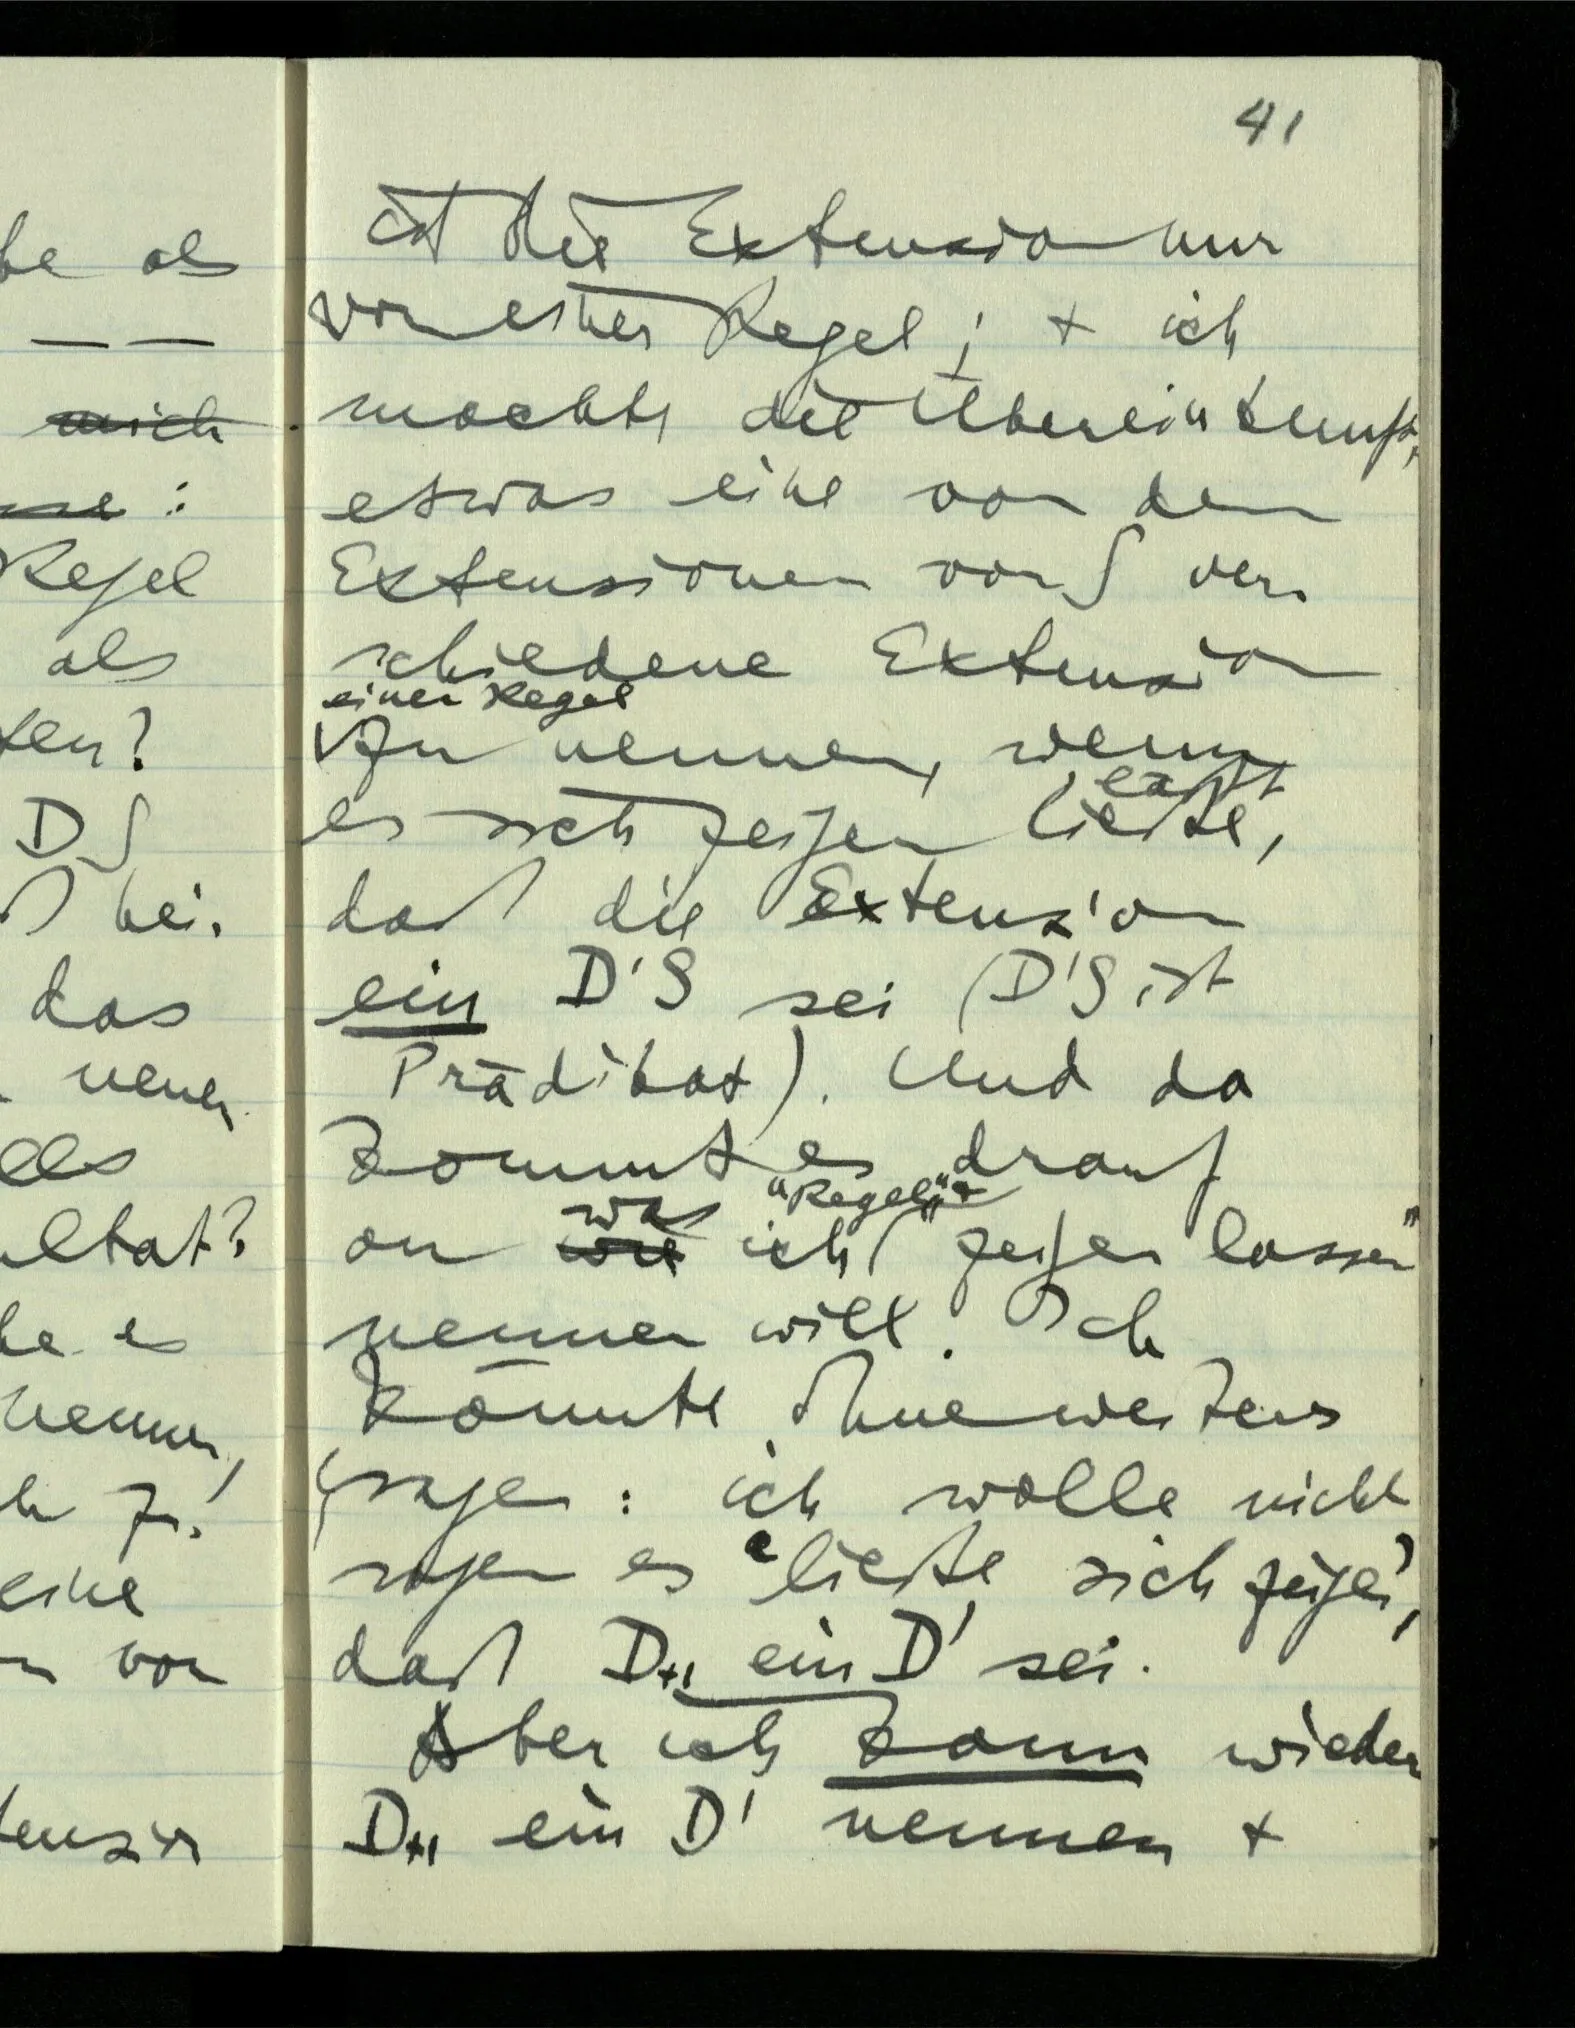 41
be als
ist die Extension nur
von einer Regel; + ich
mich
machte die Übereinkunft,
etwas eine von den
Regel
Extensionen von S ver-
als
schiedene Extension
einer Regel
ten?
zu nennen, wenn
läßt
es sich zeigen ließe,
DS
daß die Extension
bei.
das
ein D'S sei (D'S ist
Prädikat). Und da
kommt es drauf
was "Regel" +
ultat?
an wie ich "zeigen lassen"
he es
nennen will. Ich
nennen,
könnte ohneweiters
sagen: ich wolle nicht
eine
sagen es "ließe sich zeigen",
von
daß D+1 ein D' sei.
Aber ich kann wieder
D+1 ein D' nennen +